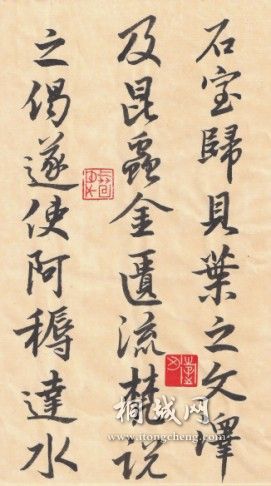 石室歸貝葉之文澤
及昆蟲金匱流梵說
之偈遂使阿耨達水
桐城网